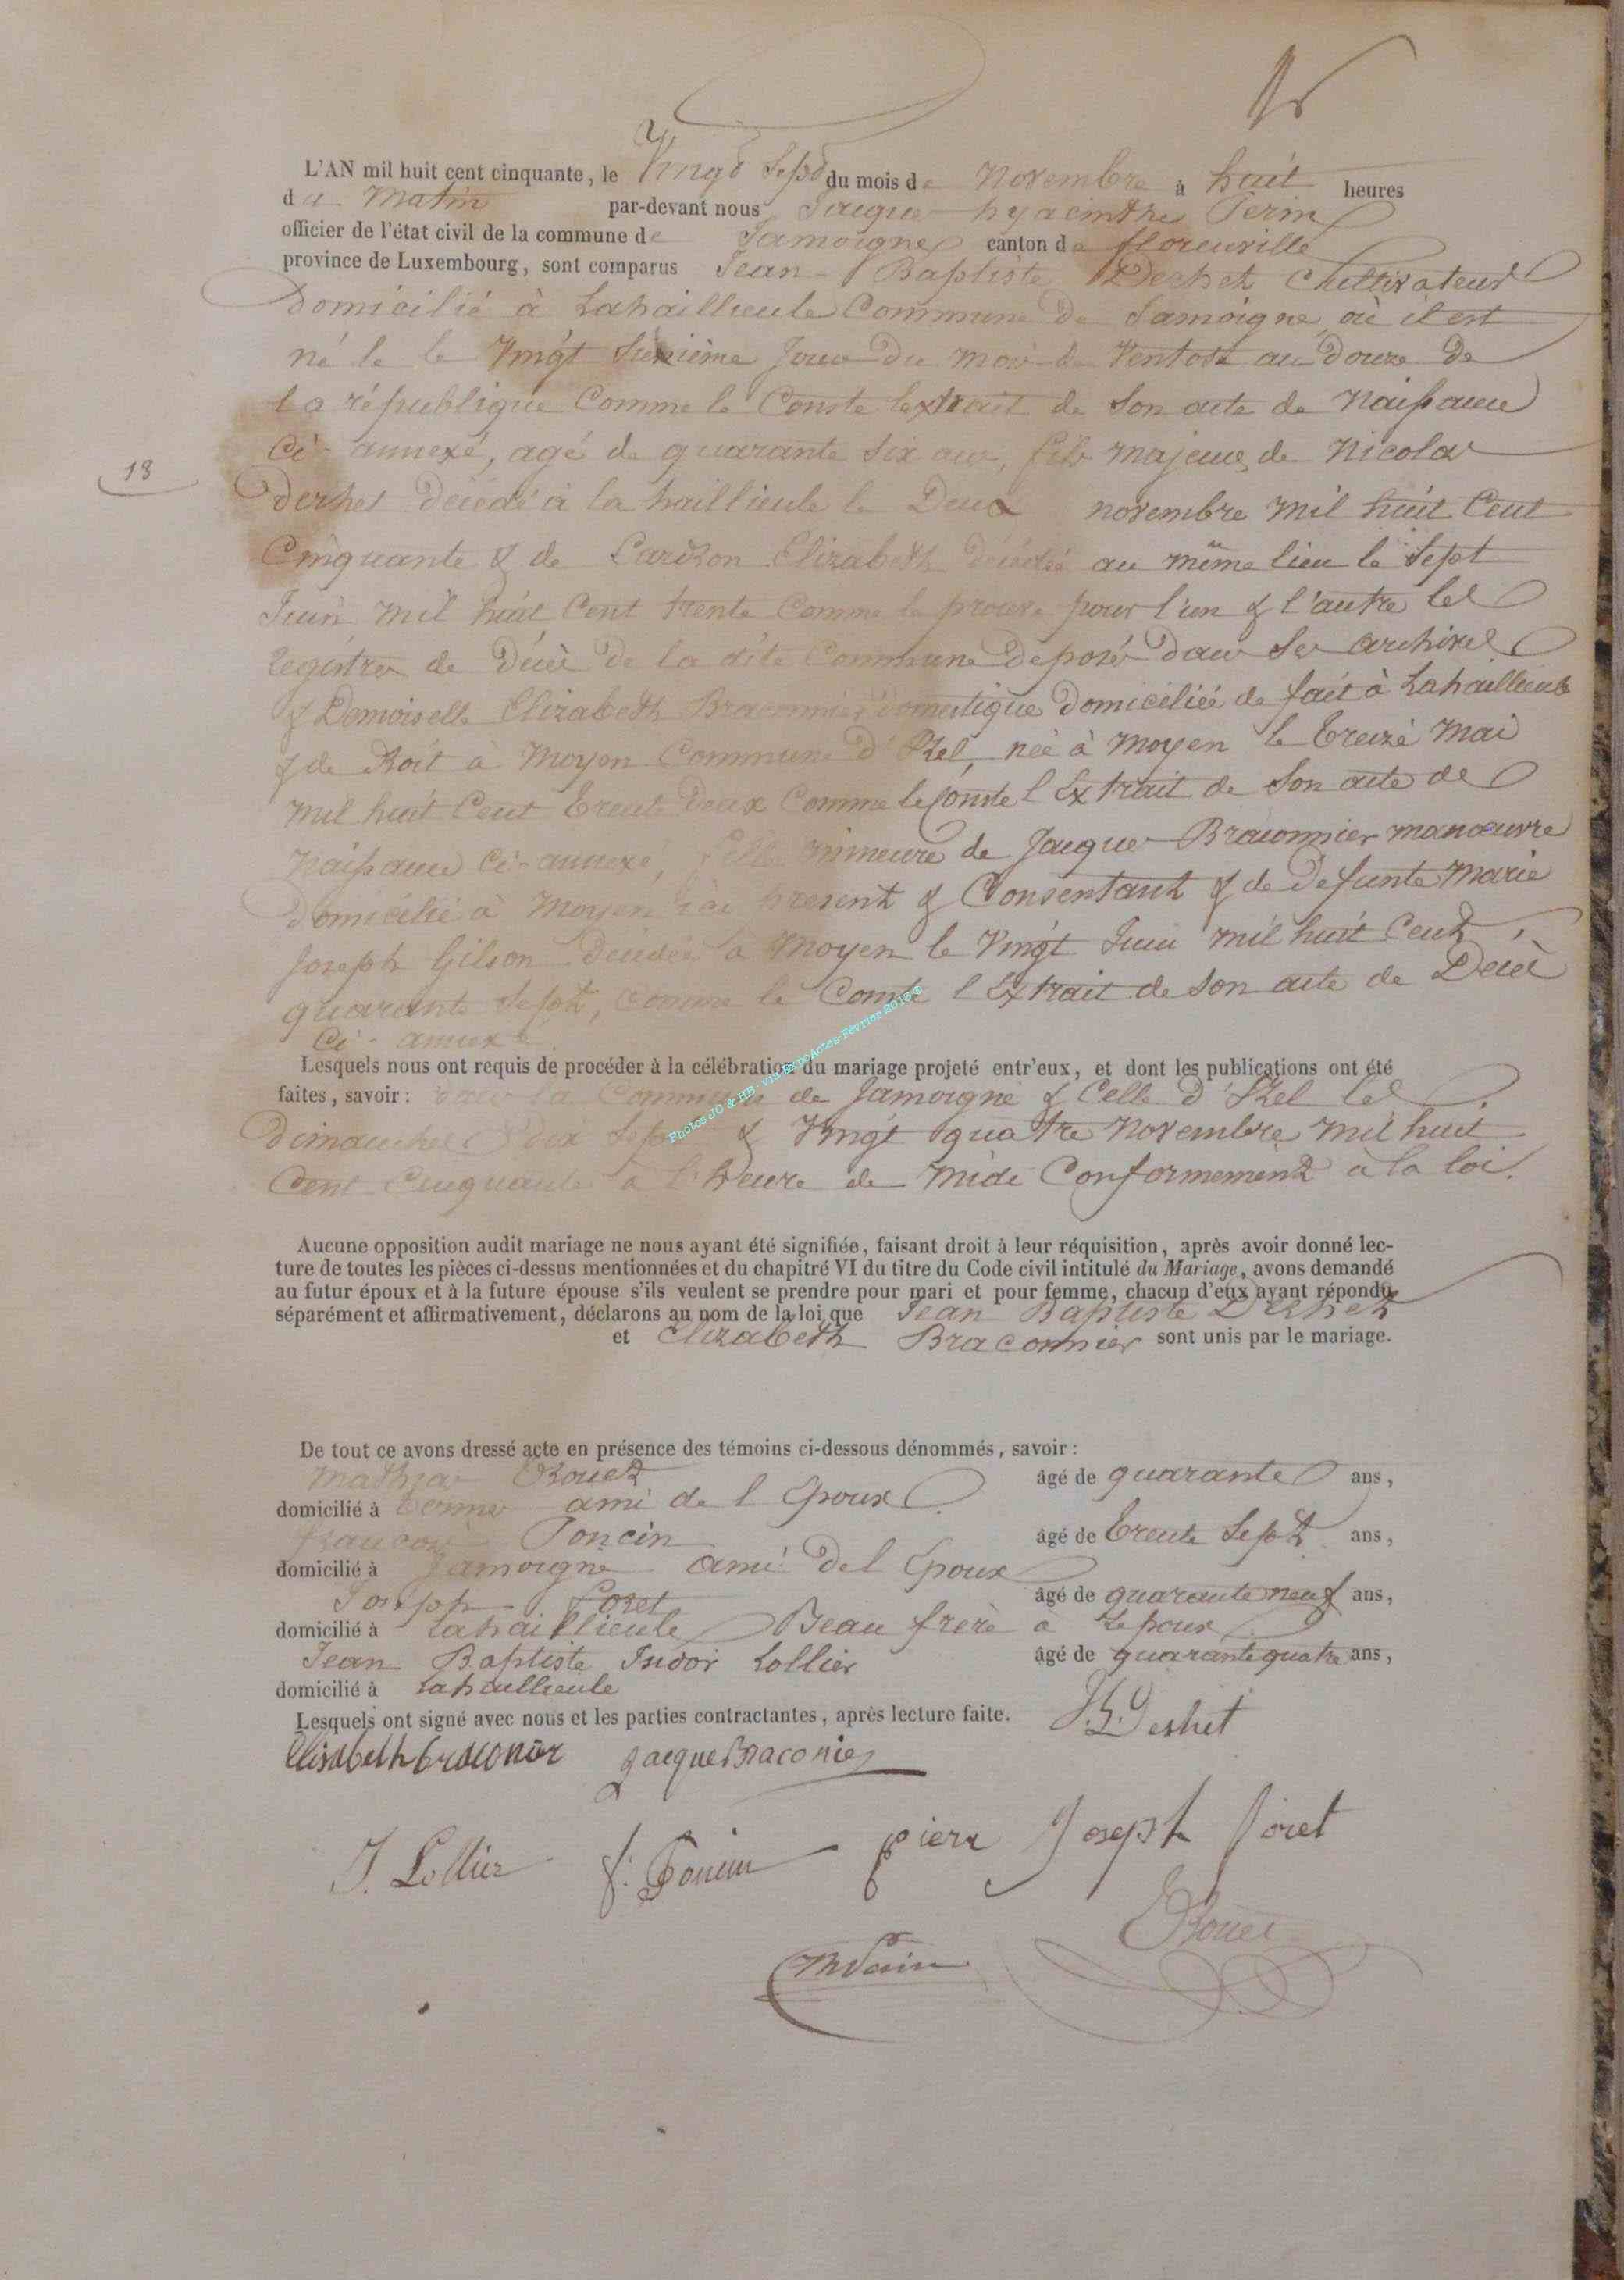 L'AN mil huit cent cinquante, le Vingt Sept du mois de Novembre à huit heures
du Matin par-devant nous Jaque hyacinthe Perin
officier de l'état civil de la commune de Jamoigne canton de florenville
province de Luxembourg, sont comparus Jean Baptiste Dershet Cultivateur
Domicilié à Lahaillieule Commune De Jamoigne où il est
né le le Vingt Sixième Jour Du mois de Ventose an Douze De
la république Comme le Conste lextrait de Son acte de Naissance
13
Ci-annexé, agé de quarante six ans, fils majeur, de Nicolas
Dershet Décédé à la haillieule le Deux novembre mil huit Cent
Cinquante & de Elizabeth Décédée au même lieu le Sept
Juin mil huit Cent trente Comme le prouve pour l'un & l'autre les
registres de Décès De la dite Commune Déposés Dans Ses archives
& Demoiselle Elizabeth Braconnier Domestique Domiciliée de fait à Lahaillieule
& de Roit à Moyen Commune D'Izel, née à Moyen le treize Mai
mil huit Cent trente Deux Comme le Conste l'Extrait de Son acte de
Naissance Ci-annexé, fille mineure de Jaque Braconnier manœuvre
Domicilié à Moyen ici présent & Consentant & de Defunte Marie
Joseph Gilson Décédée à Moyen le Vingt Juin mil huit Cent
quarante Sept, Comme le Conste l'Extrait de Son acte de Décès
Ci-annexé
Lesquels nous ont requis de procéder à la célébration du mariage projeté entr'eux, et dont les publications ont été
faites, savoir: dans la Commune de Jamoigne & Celle D'Izel les
Dimanches Dix Sept & Vingt quatre Novembre mil huit
Cent Cinquante à l'heure de midi Conformement à la loi.
Photos JO & HB - via ExpoActes Février 2018 ©
Aucune opposition audit mariage ne nous ayant été signifiée, faisant droit à leur réquisition, après avoir donné lec-
ture de toutes les pièces ci-dessus mentionnées et du chapitré VI du titre du Code civil intitulé du Mariage, avons demandé
au futur époux et à la future épouse s'ils veulent se prendre pour mari et pour femme, chacun d'eux ayant répondu
séparément et affirmativement, déclarons au nom de la loi que Jean Baptiste Dershet
et Elizabeth Braconnier sont unis par le mariage.
De tout ce avons dressé acte en présence des témoins ci-dessous dénommés, savoir:
Mathias Rouet âgé de quarante ans,
domicilié à Termes ami de l'Epoux
francois Poncin âgé de trente Sept ans,
domicilié à Jamoigne ami De l'Epoux
Joseph Joret âgé de quarante neuf ans,
domicilié à Lahaillieule Beau frère à L'epoux
Jean Baptiste Isidor Lollier âgé de quarante quatre ans,
domicilié à Lahaillieule
Lesquels ont signé avec nous et les parties contractantes, après lecture faite. J.B. Deshet
Elisabeth braconier Jacque Braconier
J. Lollier f. Poncin piere Joseph Joret
Rouet
Perin